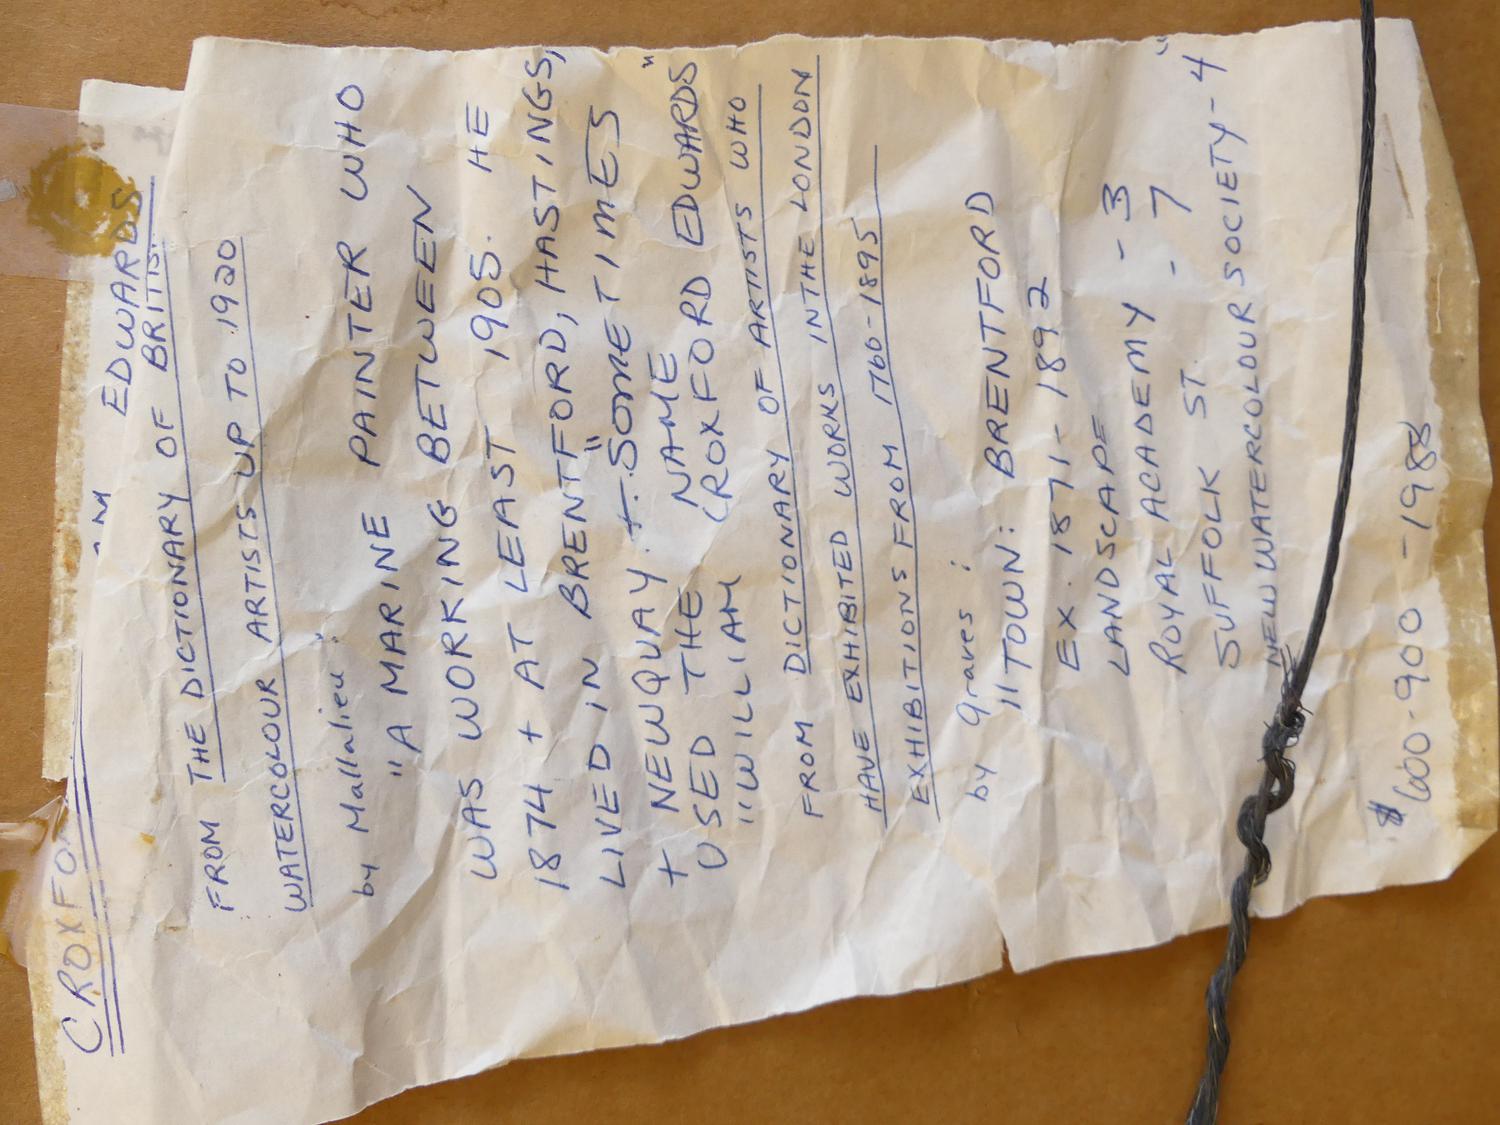 CROXFO
EDWARDS
FROM THE DICTIONARY OF BRITIS
WATERCOLOUR ARTISTS UP TO 1920
by Mallalieu:
"A MARINE PAINTER WHO
WAS WORKING BETWEEN
1874 + AT LEAST 1905. HE
LIVED IN BRENTFORD, HASTINGS,
+ NEWQUAY. + "SOMETIMES
USED THE NAME
"WILLIAM CROXFORD EDWARDS"
FROM DICTIONARY OF ARTISTS WHO
HAVE EXHIBITED WORKS IN THE LONDON
EXHIBITIONS FROM 1760-1895
by Graves:
"TOWN: BRENTFORD
EX. 1871-1892
LANDSCAPE
ROYAL ACCADEMY - 3
SUFFOLK ST. - 7
NEW WATERCOLOUR SOCIETY - 4"
$ 600-900 - 1988